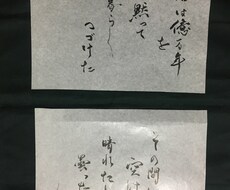 は億万年
を
黙って
暮らし
つづけた
その間に
空は
晴れたり
曇った